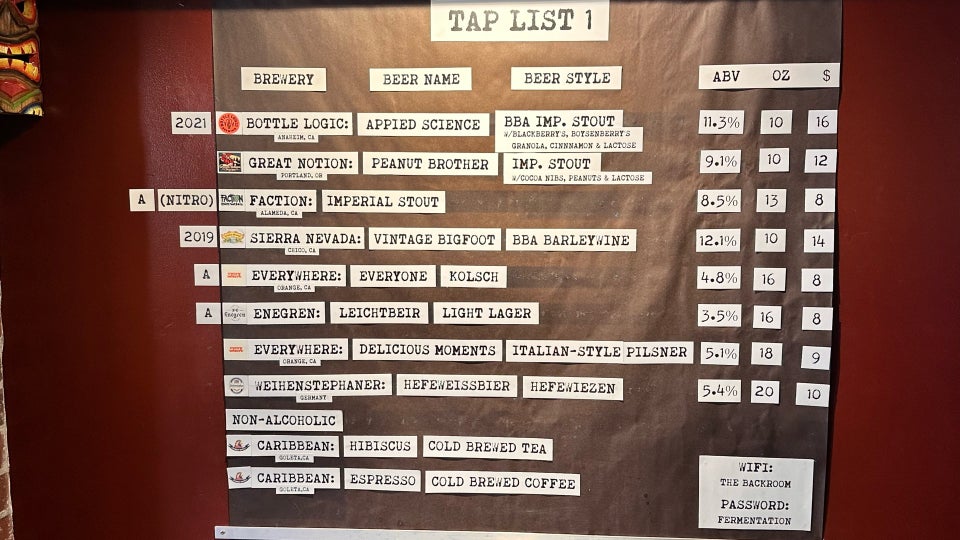 TAP LIST 1
BREWERY BEER NAME BEER STYLE ABV OZ $
2021 BOTTLE LOGIC: APPIED SCIENCE BBA IMP. STOUT 11.3% 10 16
ANAHEIM, CA W/BLACKBERRY'S, BOYSENBERRY'S
GRANOLA, CINNNAMON & LACTOSE
GREAT NOTION: PEANUT BROTHER IMP. STOUT 9.1% 10 12
PORTLAND, OR W/COCOA NIBS, PEANUTS & LACTOSE
A (NITRO) FACTION FACTION: IMPERIAL STOUT 8.5% 13 8
ALAMEDA, CA
2019 SIERRA NEVADA: VINTAGE BIGFOOT BBA BARLEYWINE 12.1% 10 14
CHICO, CA
A EVERYWHERE: EVERYONE KOLSCH 4.8% 16 8
ORANGE, CA
A Enegren ENEGREN: LEICHTBEIR LIGHT LAGER 3.5% 16 8
EVERYWHERE: DELICIOUS MOMENTS ITALIAN-STYLE PILSNER 5.1% 18 9
ORANGE, CA
WEIHENSTEPHANER: HEFEWEISSBIER HEFEWIEZEN 5.4% 20 10
GERMANY
NON-ALCOHOLIC
CARIBBEAN: HIBISCUS COLD BREWED TEA
GOLETA,CA
CARIBBEAN: ESPRESSO COLD BREWED COFFEE
GOLETA,CA
WIFI:
THE BACKROOM
PASSWORD:
FERMENTATION